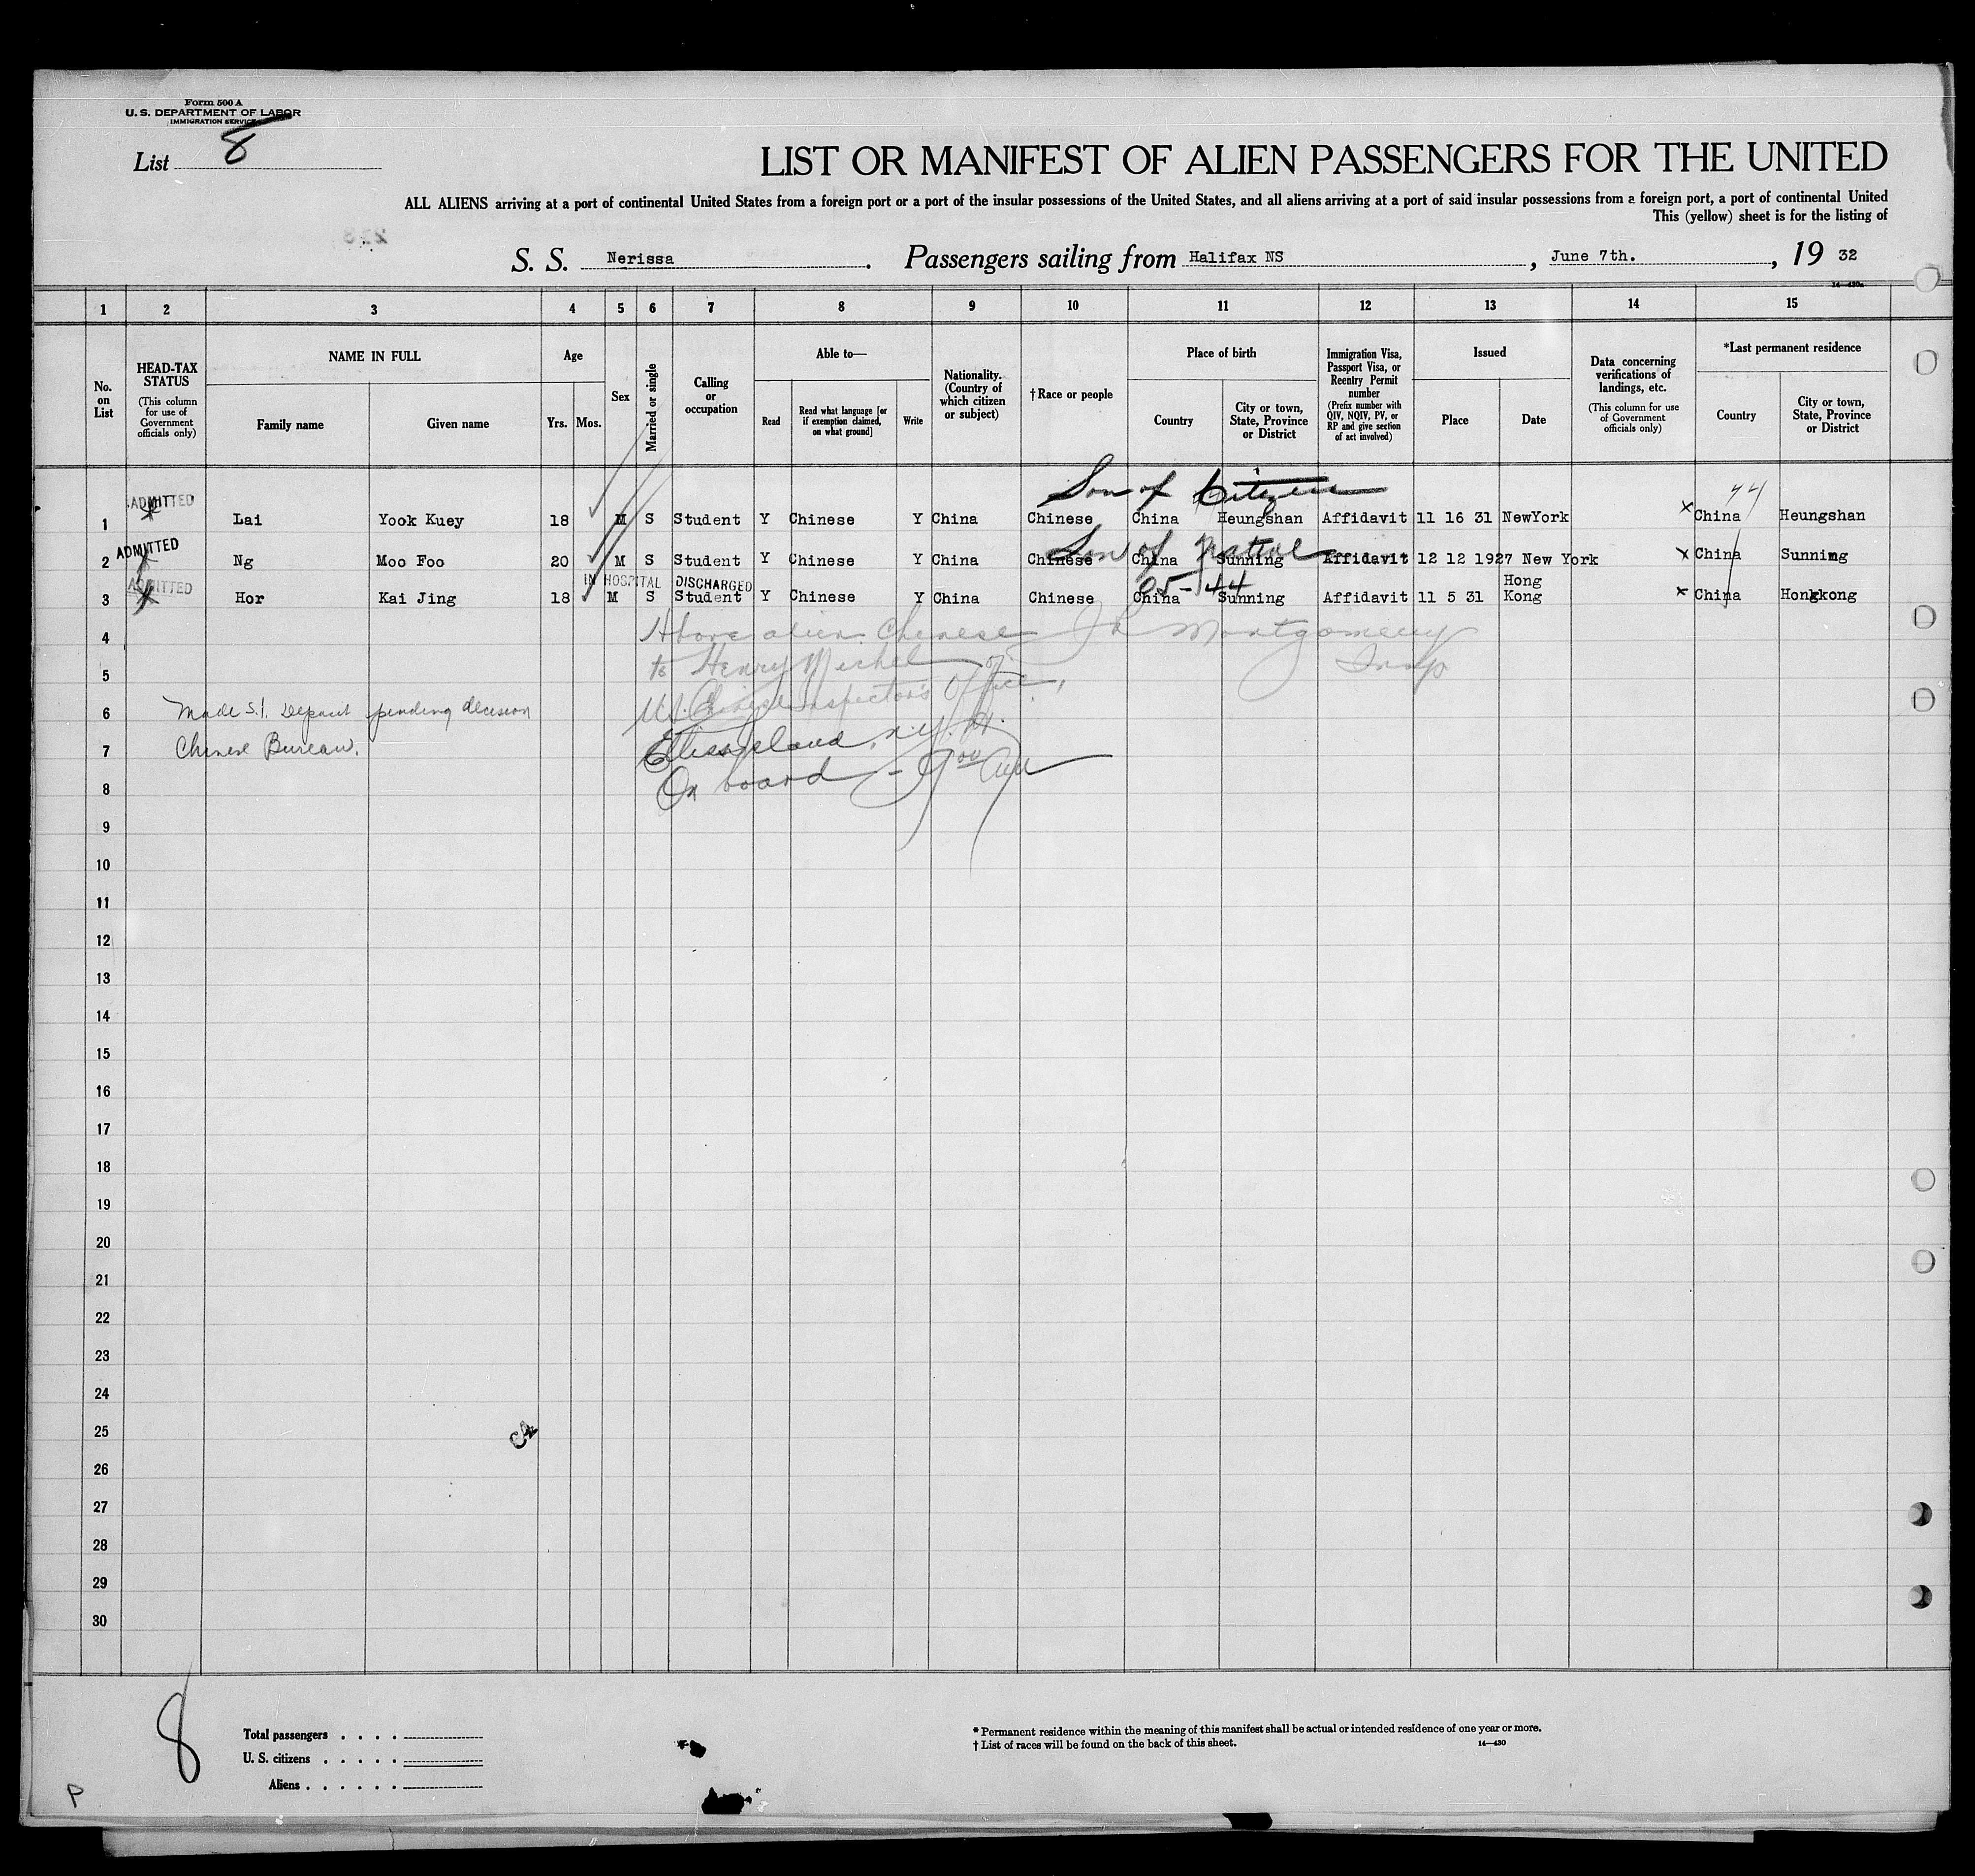 Form 500 A
U. S. DEPARTMENT OF LABOR
IMMIGRATION SERVICE
List 8
LIST OR MANIFEST OF ALIEN PASSENGERS FOR THE UNITED
ALL ALIENS arriving at a port of continental United States from a foreign port or a port of the insular possessions of the United States, and all aliens arriving at a port of said insular possessions from a foreign port, a port of continental United
This (yellow) sheet is for the listing of
S. S. Nerissa. Passengers sailing from Halifax NS, June 7th., 19 32
14—430a
1 2 3 4 5 6 7 8 9 10 11 12 13 14 15
No. on List
HEAD-TAX STATUS
(This column for use of Government officials only)
NAME IN FULL
Family name
Given name
Age
Yrs. Mos.
Sex
Married or single
Calling or occupation
Able to—
Read
Read what language [or if exemption claimed, on what ground]
Write
Nationality. (Country of which citizen or subject)
†Race or people
Place of birth
Country
City or town, State, Province or District
Immigration Visa, Passport Visa, or Reentry Permit number
(Prefix number with QIV, NQIV, PV, or RP and give section of act involved)
Issued
Place
Date
Data concerning verifications of landings, etc.
(This column for use of Government officials only)
*Last permanent residence
Country
City or town, State, Province or District
Son of Citizen
44
ADMITTED
1 Lai Yook Kuey 18 M S Student Y Chinese Y China Chinese China Heungshan Affidavit 11 16 31 NewYork x China Heungshan
ADMITTED
Son of
2 Ng Moo Foo 20 M S Student Y Chinese Y China Chinese China Sunning Affidavit 12 12 1927 New York x China Sunning
ADMITTED
IN HOSPITAL DISCHARGED
25-44
3 Hor Kai Jing 18 M S Student Y Chinese Y China Chinese China Sunning Affidavit 11 5 31 Hong Kong x China Hongkong
4 Above alien Chinese Montgomery
5 to Henry Michel of Insp
U.S. Chinese Inspector's Office,
6 Made S.I. pending decision
7 Chinese Bureau. Ellis Island, N.Y. H.
8 On board - 9 00 AM
9
10
11
12
13
14
15
16
17
18
19
20
21
22
23
24
25
26
27
28
29
30
8
Total passengers . . . .
U. S. citizens . . . . .
Aliens . . . . . .
* Permanent residence within the meaning of this manifest shall be actual or intended residence of one year or more.
† List of races will be found on the back of this sheet.
14—430
P